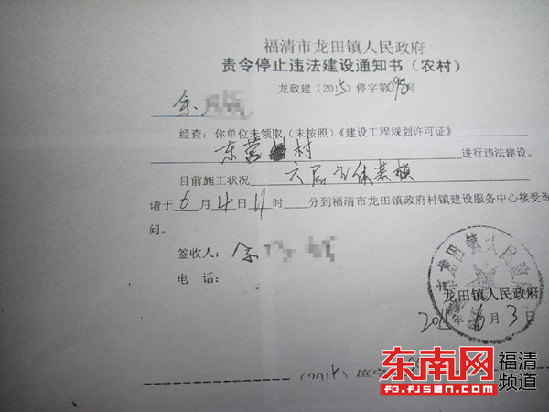 福清市龙田镇人民政府
责令停止违法建设通知书(农村)
龙政建〔2015〕停字第098号
余
经查:你单位未领取(未按照)《建设工程规划许可证》
东营 村 进行违法建设。
目前施工状况 六层
请于6月4日11时 分到福清市龙田镇政府村镇建设服务中心接受
问。
签收人:余
电 话:
龙田镇人民政府
2015年6月3日
(2015)停字
东南网 福清频道
FJ.FJSEN.COM